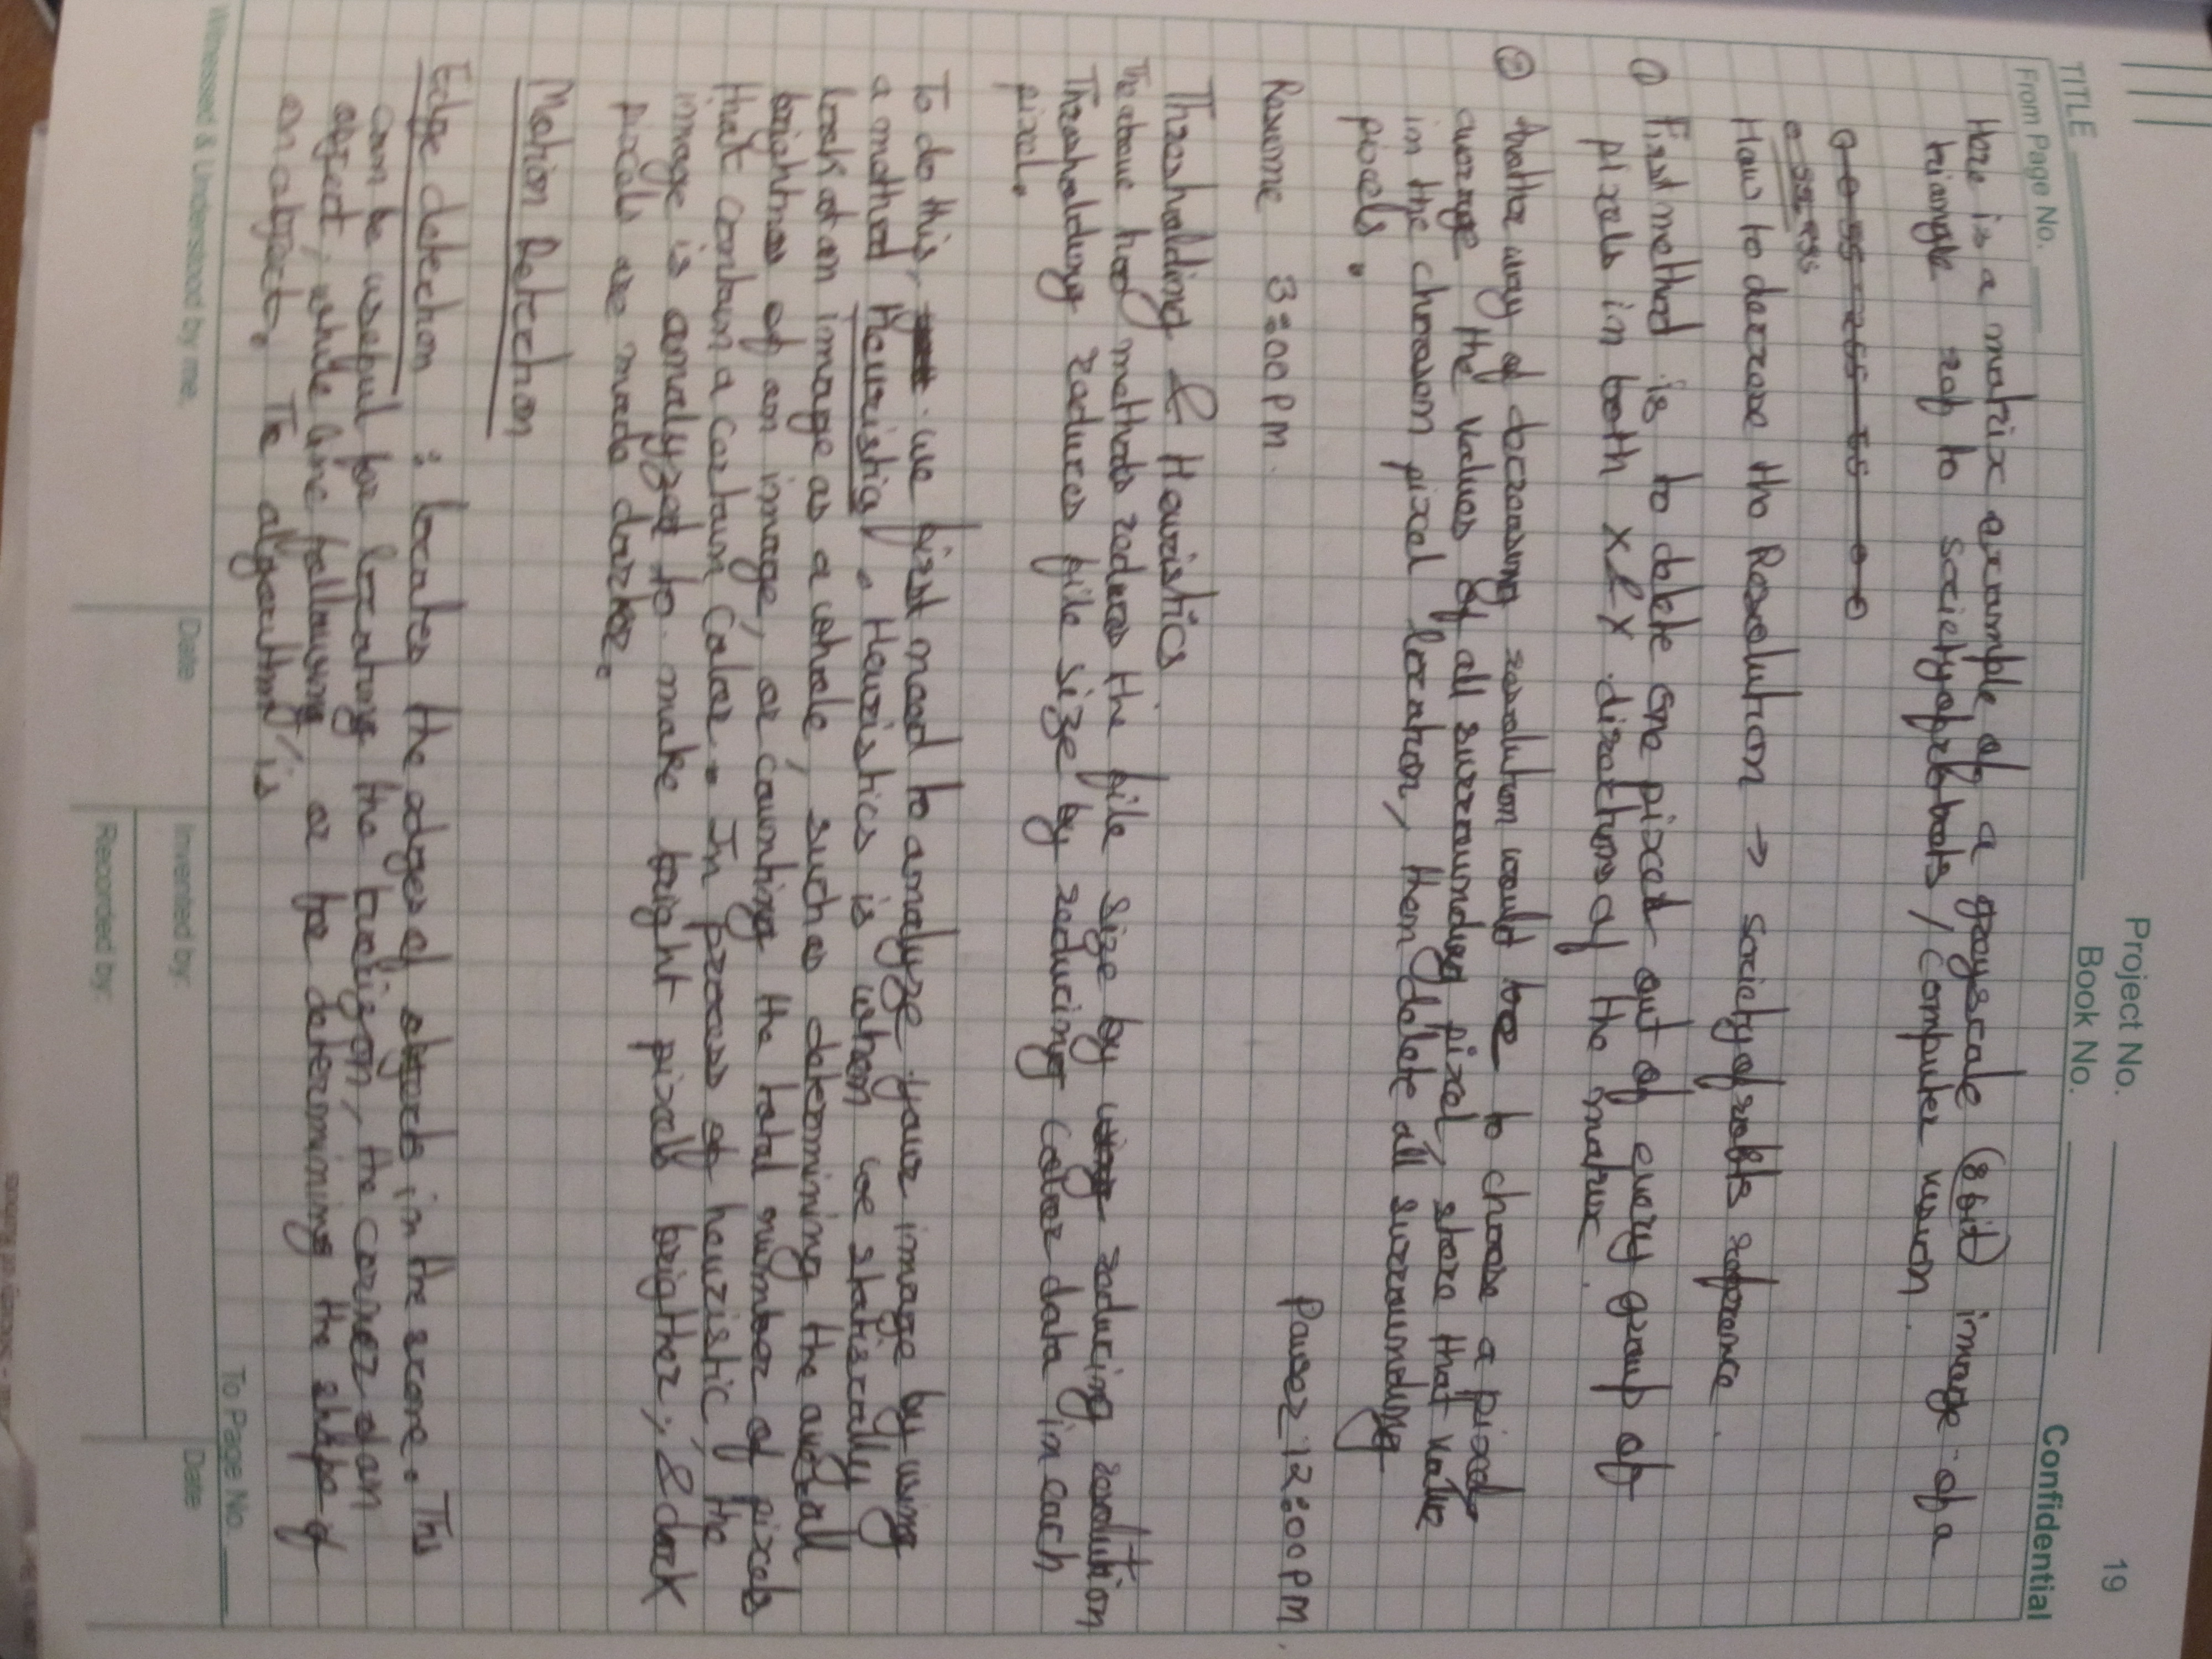 Project No.
19
Book No.
TITLE
From Page No.
Confidential
Here is a matrix example of a grayscale (8 bit) image of a
triangle ref to society of robots / Computer vision.
0 0 55 255 55 0 0
0 55 255
How to decrease the Resolution → society of robots reference.
① First method is to delete one pixel out of every group of
pixels in both X & Y directions of the matrix.
② Another way of decreasing resolution would be to choose a pixel,
average the values of all surrounding pixel, store that value
in the choosen pixel location, then delete all surrounding
pixels.
Pause: 12:00 PM.
Resume 3:00 PM.
Thresholding & Heuristics
The above two methods reduces the file size by using reducing resolution
Thresholding reduces file size by reducing color data in each
pixel.
To do this, we first need to analyze your image by using
a method Heuristics. Heuristics is when we statiscally
look at an image as a whole, such as determining the overall
brightness of an image, or counting the total number of pixels
that contain a certain color. In process of heuristic, the
image is analyzed to make bright pixels brighter, & dark
pixels are made darker.
Motion Detection
Edge detection : locates the edges of objects in the scene. This
can be useful for locating the horizon, the corner of an
object, while line following or for determining the shape of
an object. The algorithm is
To Page No.
Witnessed & Understood by me,
Date
Invented by:
Date
Recorded by: